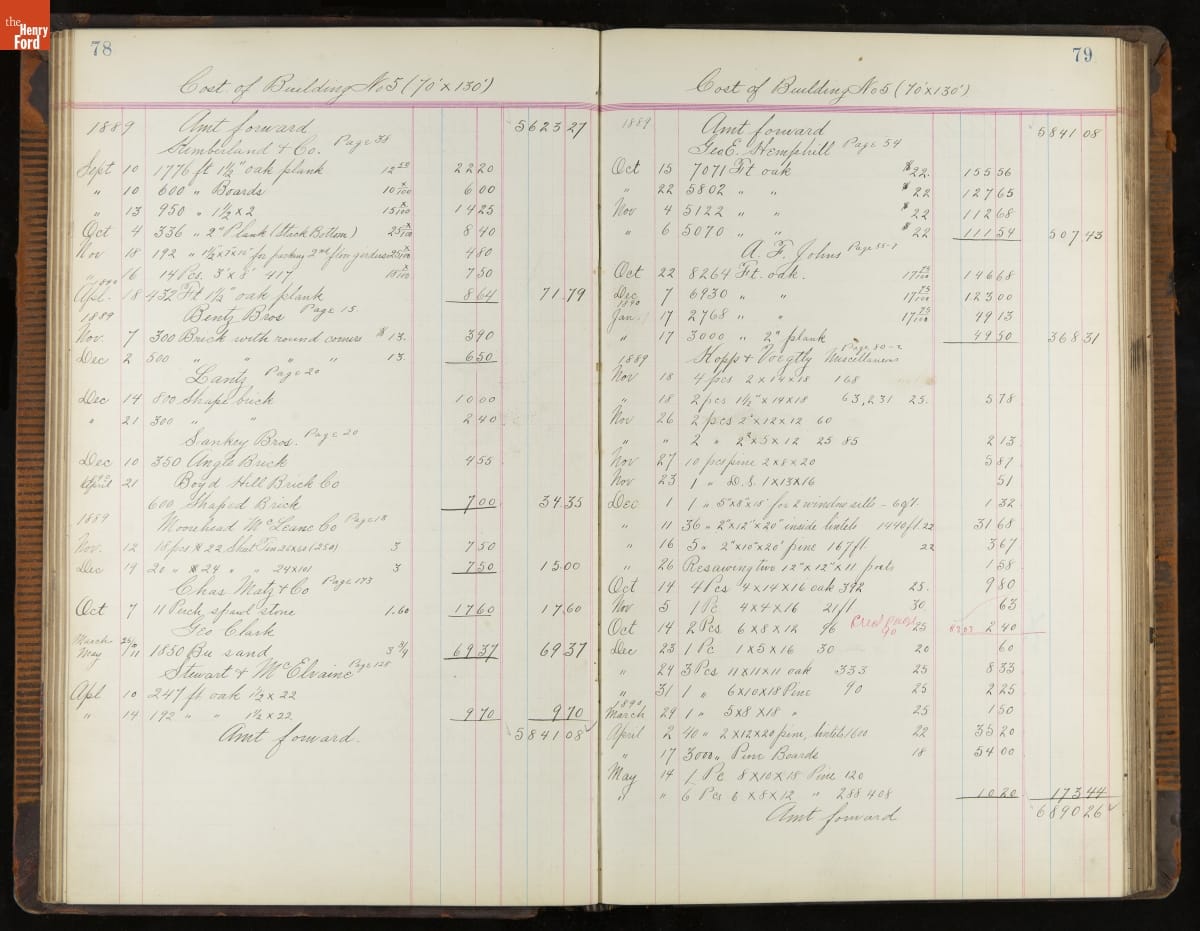 the
Henry
Ford
78
Cost of Building No 5 (70' x 130')
1889 Amt forward 5623 27
& Co. Page 38
Sept 10 1776 ft 1½" oak plank 12 50 22 20
" 10 600 " Boards 10 x/100 6 00
" 13 950 " 1½ x 2 15 x/100 14 25
Oct 4 336 " 2" Plank (Stack Bottom) 25 x/100 8 40
Nov 18 192 " 1½ x 7 x 10" for packing 2nd floor girders 25 x/100 4 80
" 16 14 Pcs. 3" x 8" 417 18 x/100 7 50
Apl. 18 432 Ft 1½" oak plank 8 64 71.79
1889 Bentz Bros Page 15
Nov. 7 300 Brick with round corners $ 13. 3 90
Dec 2 500 " " " " 13. 6 50
Lantz Page 20
Dec 14 800 Shape brick 10 00
" 21 300 " " 2 40
Sankey Bros. Page 20
Dec 10 350 Angle Brick 4 55
April 21 Boyd Hill Brick Co
600 Shaped Brick 7 00 34.35
1889 Moorhead McCleane Co Page 18
Nov. 12 18 pcs # 22 Sheet Iron 26x60 (250) 3 7 50
Dec 19 20 " # 24 " " 24x101 3 7 50 15.00
Chas Matz & Co Page 173
Oct 7 11 Perch spawl stone 1.60 17 60 17.60
Geo Clark
March 25/
May 11 1850 Bu sand 3 3/4 69 37 69 37
Stewart & McElvaine Page 128
Apl 10 247 ft oak 1½ x 22
" 14 192 " " 1½ x 22 9 70 9 70
Amt forward. 5841 08
79
Cost of Building No 5 (70' x 130')
1889 Amt forward 5841 08
Geo E. Hemphill Page 54
Oct 15 7071 Ft oak $ 22. 155 56
" 22 5802 " " $ 22 127 65
Nov 4 5122 " " $ 22 112 68
" 6 5070 " " $ 22 111 54 507 43
A. F. Johns Page 55-1
Oct 22 8264 Ft. oak. 17 75/100 146 68
Dec 7 6930 " " 17 75/100 123 00
1890
Jan. 17 2768 " " 17 75/100 49 13
" 17 3000 " 2" plank 49 50 368 31
1889 Hopp & Voegtly Miscellaneous Page 80-2
Nov 18 4 pcs 2 x 14 x 18 168
" 18 2 pcs 1½" x 14 x 18 63, 231 25. 5 78
Nov 26 2 pcs 2" x 12 x 12 60
" " 2 " 2" x 5 x 12 25 85 2 13
Nov 27 10 pcs pine 2 x 8 x 20 5 87
Nov 23 1 " D.S. 1 x 13 x 16 51
Dec 1 1 " 5" x 8" x 18' for 2 window sills - 60ft. 1 32
" 11 36 " 2" x 12" x 20" inside lintels 1440 ft 22 31 68
" 16 5 " 2" x 10" x 20' pine 167 ft 22 3 67
" 26 Resawing two 12" x 12" x 11 posts 1 58
Oct 14 4 Pcs 4 x 14 x 16 oak 392 25. 9 80
Nov 5 1 Pc 4 x 4 x 16 21 ft 30 63
Oct 14 2 Pcs 6 x 8 x 12 96 25 2 40
Dec 23 1 Pc 1 x 5 x 16 30 20 60
" 24 3 Pcs 11 x 11 x 11 oak 333 25 8 33
" 31 1 " 6 x 10 x 18 Pine 90 25 2 25
1890
March 29 1 " 5 x 8 x 18 " 25 1 50
April 2 40 " 2 x 12 x 20 pine, lintels 1600 22 35 20
" 17 3000 " Pine Boards 18 54 00
May 14 1 Pc 8 x 10 x 18 Pine 120
" " 6 Pcs 6 x 8 x 12 " 288 408 10 20 173 44
Amt forward 6890 26